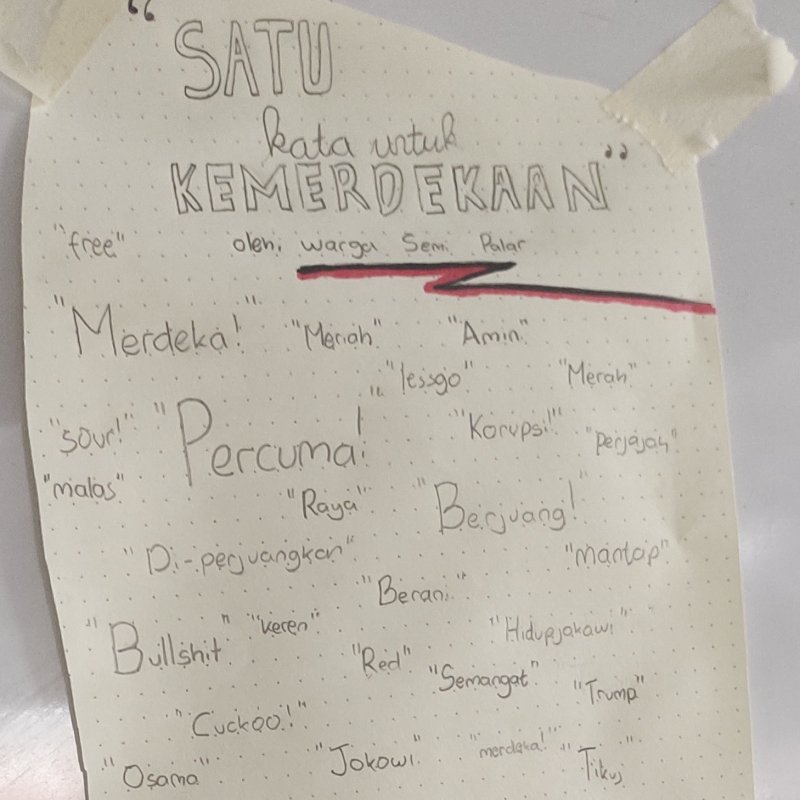 "SATU
kata untuk
KEMERDEKAAN"
"free" oleh: warga Semi Palar
"Merdeka!" "Meriah" "Amin"
"lessgo" "Merah"
"sour!" "Percuma!" "Korupsi!" "perjajah"
"malas" "Raya" "Berjuang!"
"Di-perjuangkan" "mantap"
"Berani"
"Bullshit" "keren" "Hidupjakawi"
"Red" "Semangat" "Trump"
"Cuckoo!"
"Osama" "Jokowi" "merdeka!" "Tikus"